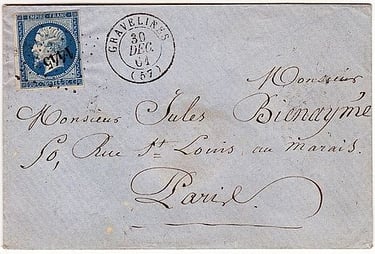 EMPIRE FRANC.
1445
GRAVELINES
30
DEC.
61
(57)
Monsieur
Monsieur Jules Bienaymé
50, Rue St Louis, au marais.
Paris.